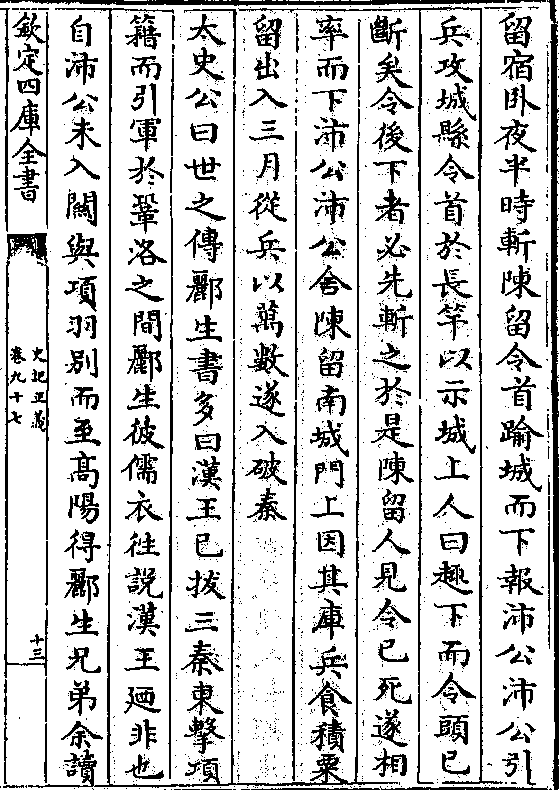 留宿卧夜半時斬陳留令首踰城而下報沛公沛公引
兵攻城縣令首於長竿以示城上人曰趣下而令頭已
斷矣令後下者必先斬之於是陳留人見令已死遂相
率而下沛公沛公舍陳留南城門上因其庫兵食積粟
留出入三月從兵以萬數遂入破秦
太史公曰世之傳酈生書多曰漢王已拔三秦東擊項
籍而引軍於鞏洛之間酈生彼儒衣往說漢王廼非也
自沛公未入關與項羽別而至髙陽得酈生兄弟余讀
欽定四庫全書
史記正義
卷九十七
十三